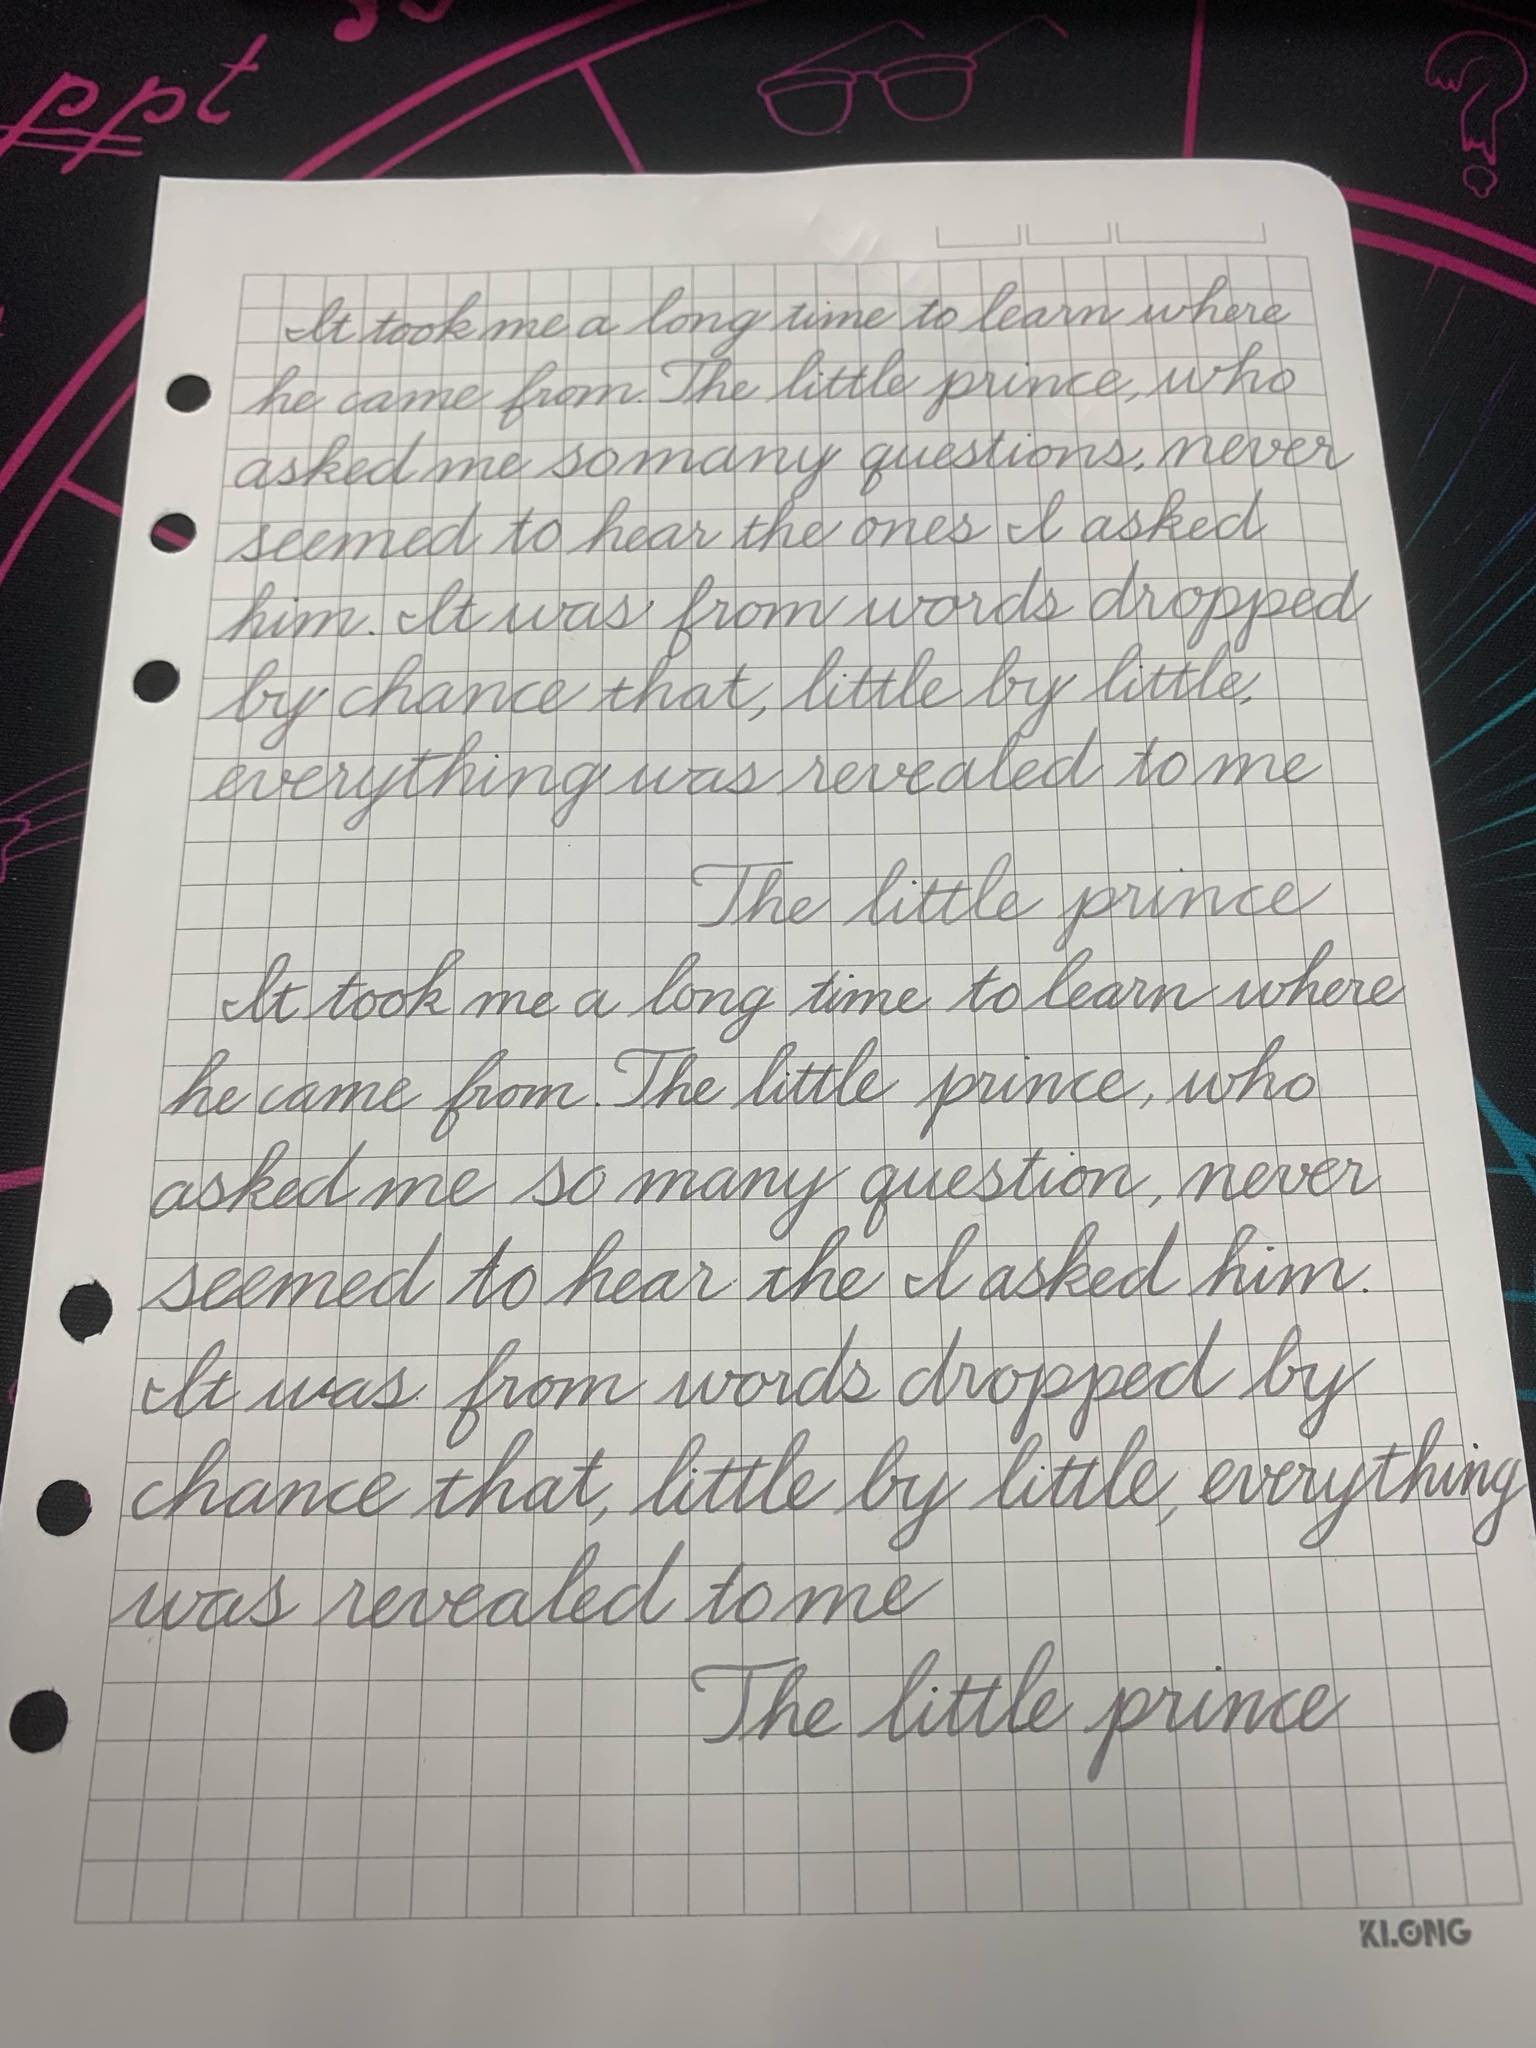 ppt
It took me a long time to learn where
he came from. The little prince, who
asked me so many questions, never
seemed to hear the ones I asked
him. It was from words dropped
by chance that, little by little,
everything was revealed to me
The little prince
It took me a long time to learn where
he came from. The little prince, who
asked me so many question, never
seemed to hear the I asked him.
It was from words dropped by
chance that, little by little, everything
was revealed to me
The little prince
KLONG